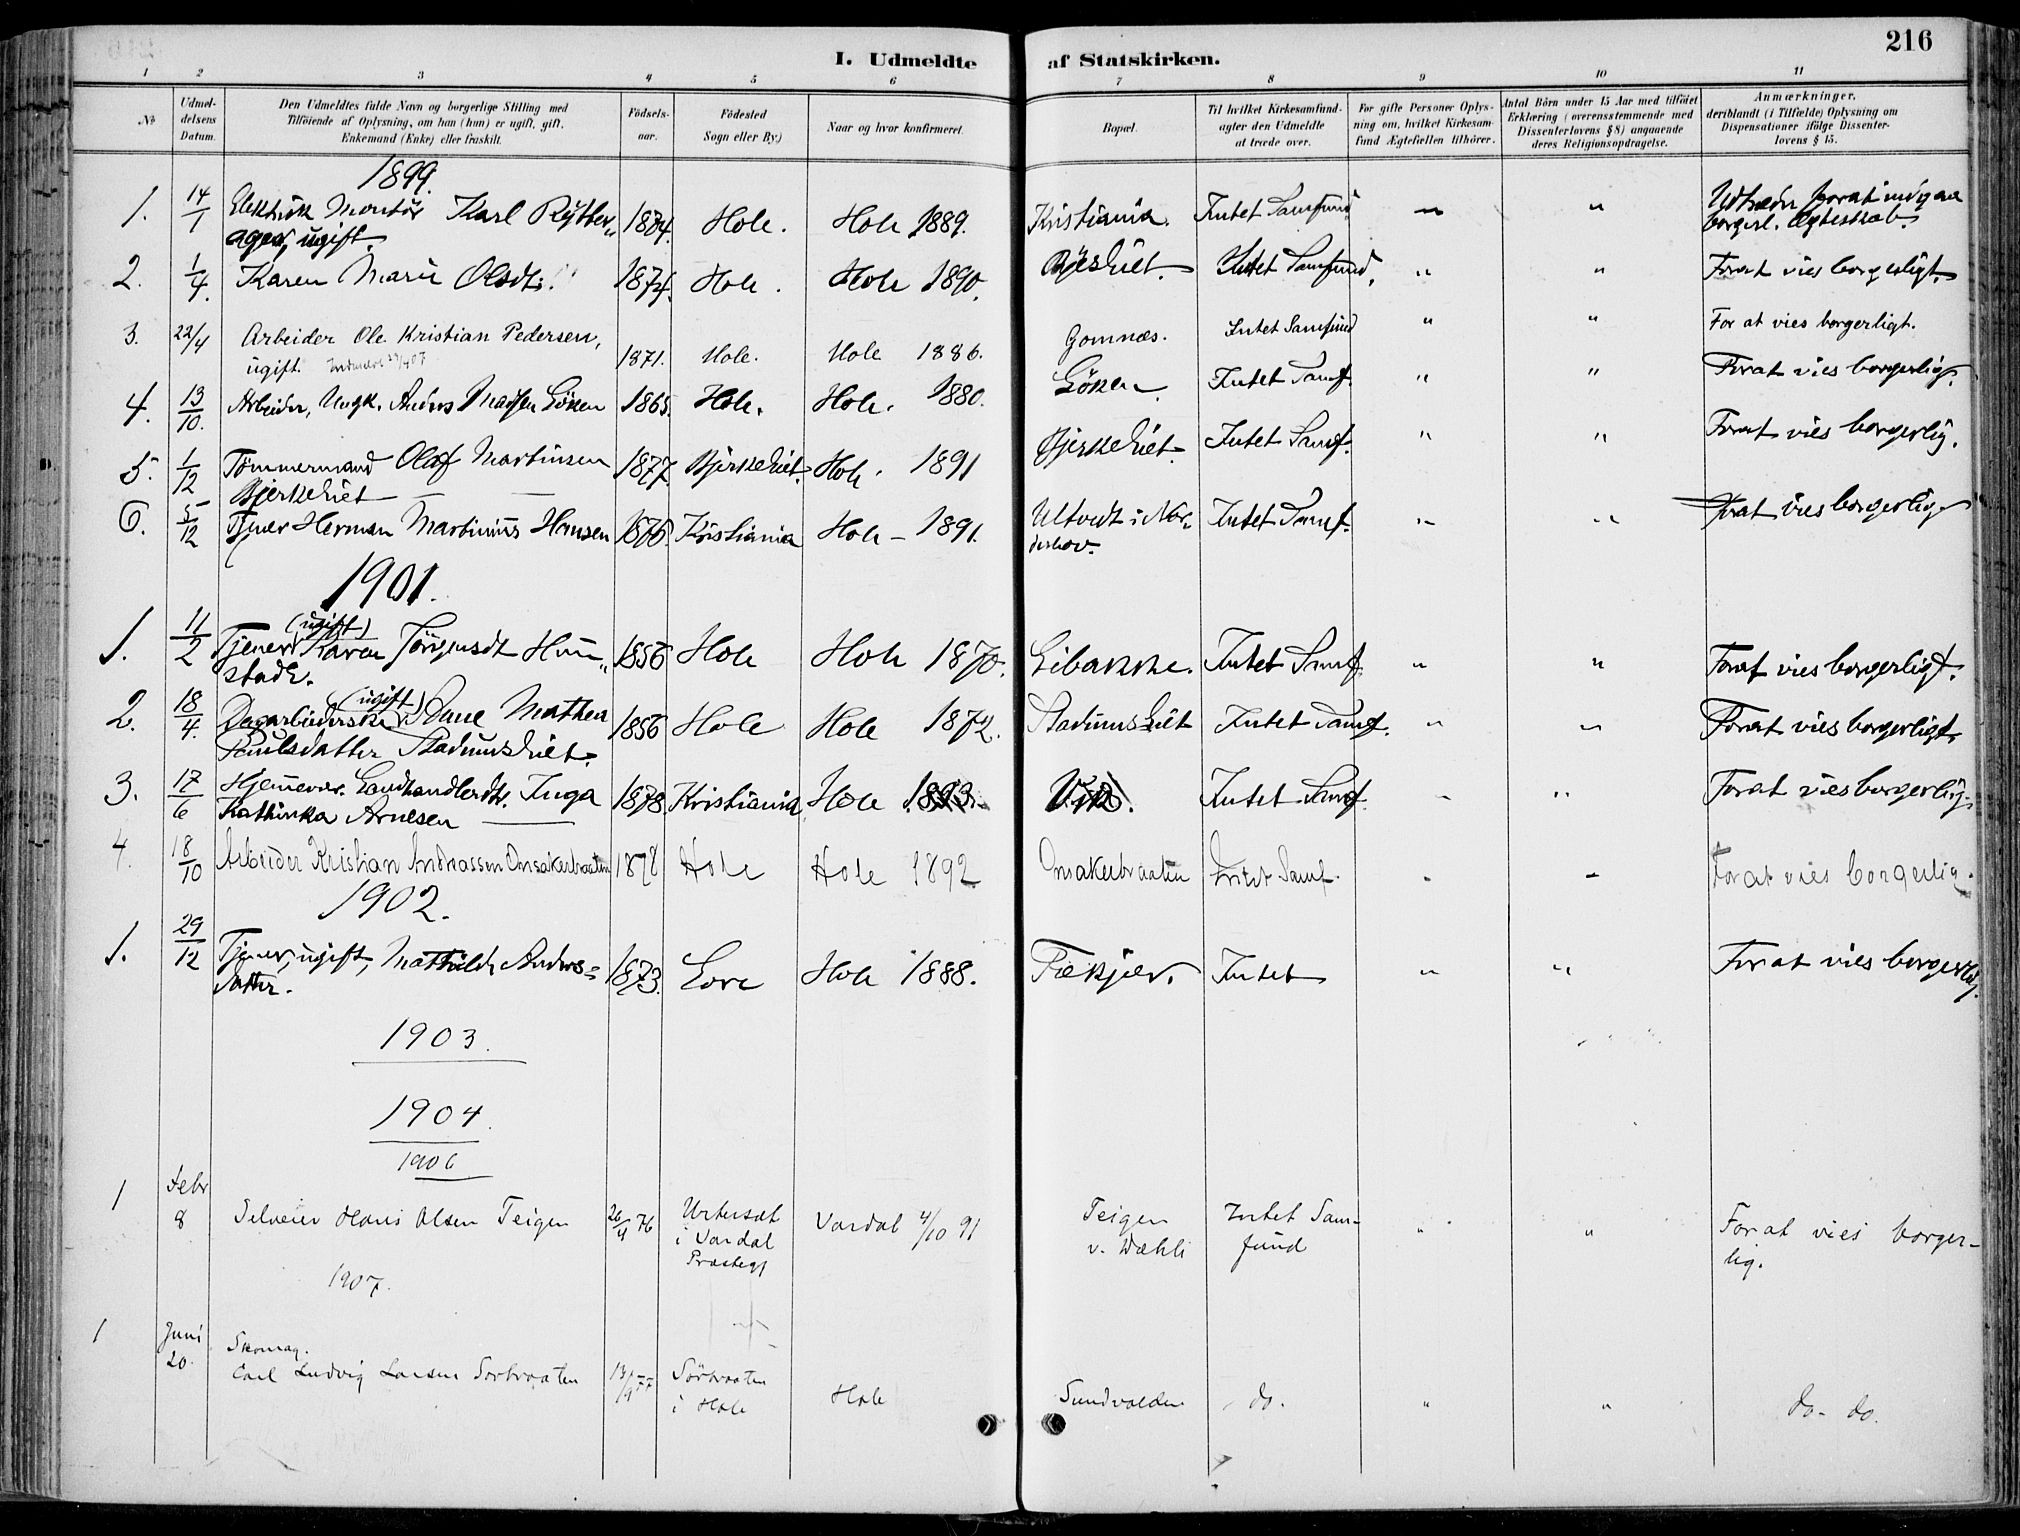 216
I. Udmeldte af Statskirken.
1 2 3 4 5 6 7 8 9 10 11
No
Udmeldelsens Datum.
Den Udmeldtes fulde Navn og borgerlige Stilling med
Tilföiende af Oplysning, om han (hun) er ugift, gift,
Enkemand (Enke) eller fraskilt.
Födselsaar.
Födested
Sogn eller By.)
Naar og hvor konfirmeret.
Bopæl.
Til hvilket Kirkesamfund-
agter den Udmeldte
at træde over.
For gifte Personer Oplys-
ning om, hvilket Kirkesam-
fund Ægtefællen tilhörer.
Antal Börn under 15 Aar med tilföiet
Erklæring (overensstemmende med
Dissenterlovens § 8) angaaende
deres Religionsopdragelse.
Anmærkninger,
deriblandt (i Tilfælde) Oplysning om
Dispensationer ifölge Dissenter-
lovens § 15.
1899.
1. 14/1 Elektrisk Montör Karl Rytter„ 1874. Hole. Hole 1889. Kristiania. Intet Samfund „ „ Udtræder for at indgaa
ager, ugift. borgerl. Ægteskab.
2. 1/4. Karen Marie Olsdtr. 1874. Hole. Hole 1890. Intet Samfund. „ „ For at vies borgerligt.
3. 22/4 Arbeider Ole Kristian Pedersen, 1871. Hole. Hole 1886. Gomnæs. Intet Samfund „ „ For at vies borgerligt.
ugift.
4. 13/10. Arbeider, Ungk. Anders Madsen Löken 1865. Hole. Hole. 1880. Löken. Intet Samf. „ „ For at vies borgerlig.
5. 1/12 Tömmermand Olaf Martinsen 1877. Bjerkehiet. Hole. 1891 Bjerkehiet. Intet Samf. „ „ For at vies borgerlig.
Bjerkehiet
6. 5/12 Tjener Herman Martinius Hansen 1876. Kristiania Hole - 1891. Ultvedt i Nor„ Intet Samf. „ „ For at vies borgerlig
derhov.
1901.
1. 11/2 Tjener (ugift) Karen Jörgensdt 1856 Hole Hole 1870. Libakke. Intet Samf. „ „ For at vies borgerligt.
2. 18/4. Dagarbeiderske (ugift) Mathea 1856 Hole Hole 1872. Stadumshiet Intet Samf. „ „ For at vies borgerligt.
Paulsdatter Stadumshiet.
3. 17/6 Hjemmevær. Landhandlerdtr. Inga 1878. Kristiania Hole 1893. Vik. Intet Samf. „ „ For at vies borgerlig.
Kathinka Arnesen
4. 18/10 Arbeider Kristian Andreassen Onsakerbraaten 1878 Hole Hole 1892 Onsakerbraaten Intet Samf. - - For at vies borgerlig.
1902.
1. 29/12 Tjener, ugift, Mathilde Anders= 1873. Hole 1888. Fækjær. Intet „ „ For at vies borgerlig.
datter.
1903.
1904.
1906
1 Febr 8 Selveier Hans Olsen Teigen 26/4 76 i Vardal Præstegj Vardal 4/10 91 Teigen v. Wæhli Intet Sam-
fund „ „ For at vies borger-
lig.
1907.
1 Juni 20. Skomag.
Carl Ludvig Larsen Sörbraaten 13/9 77 Sörbraaten
i Hole Hole Sundvolden do. „ „ do. do.